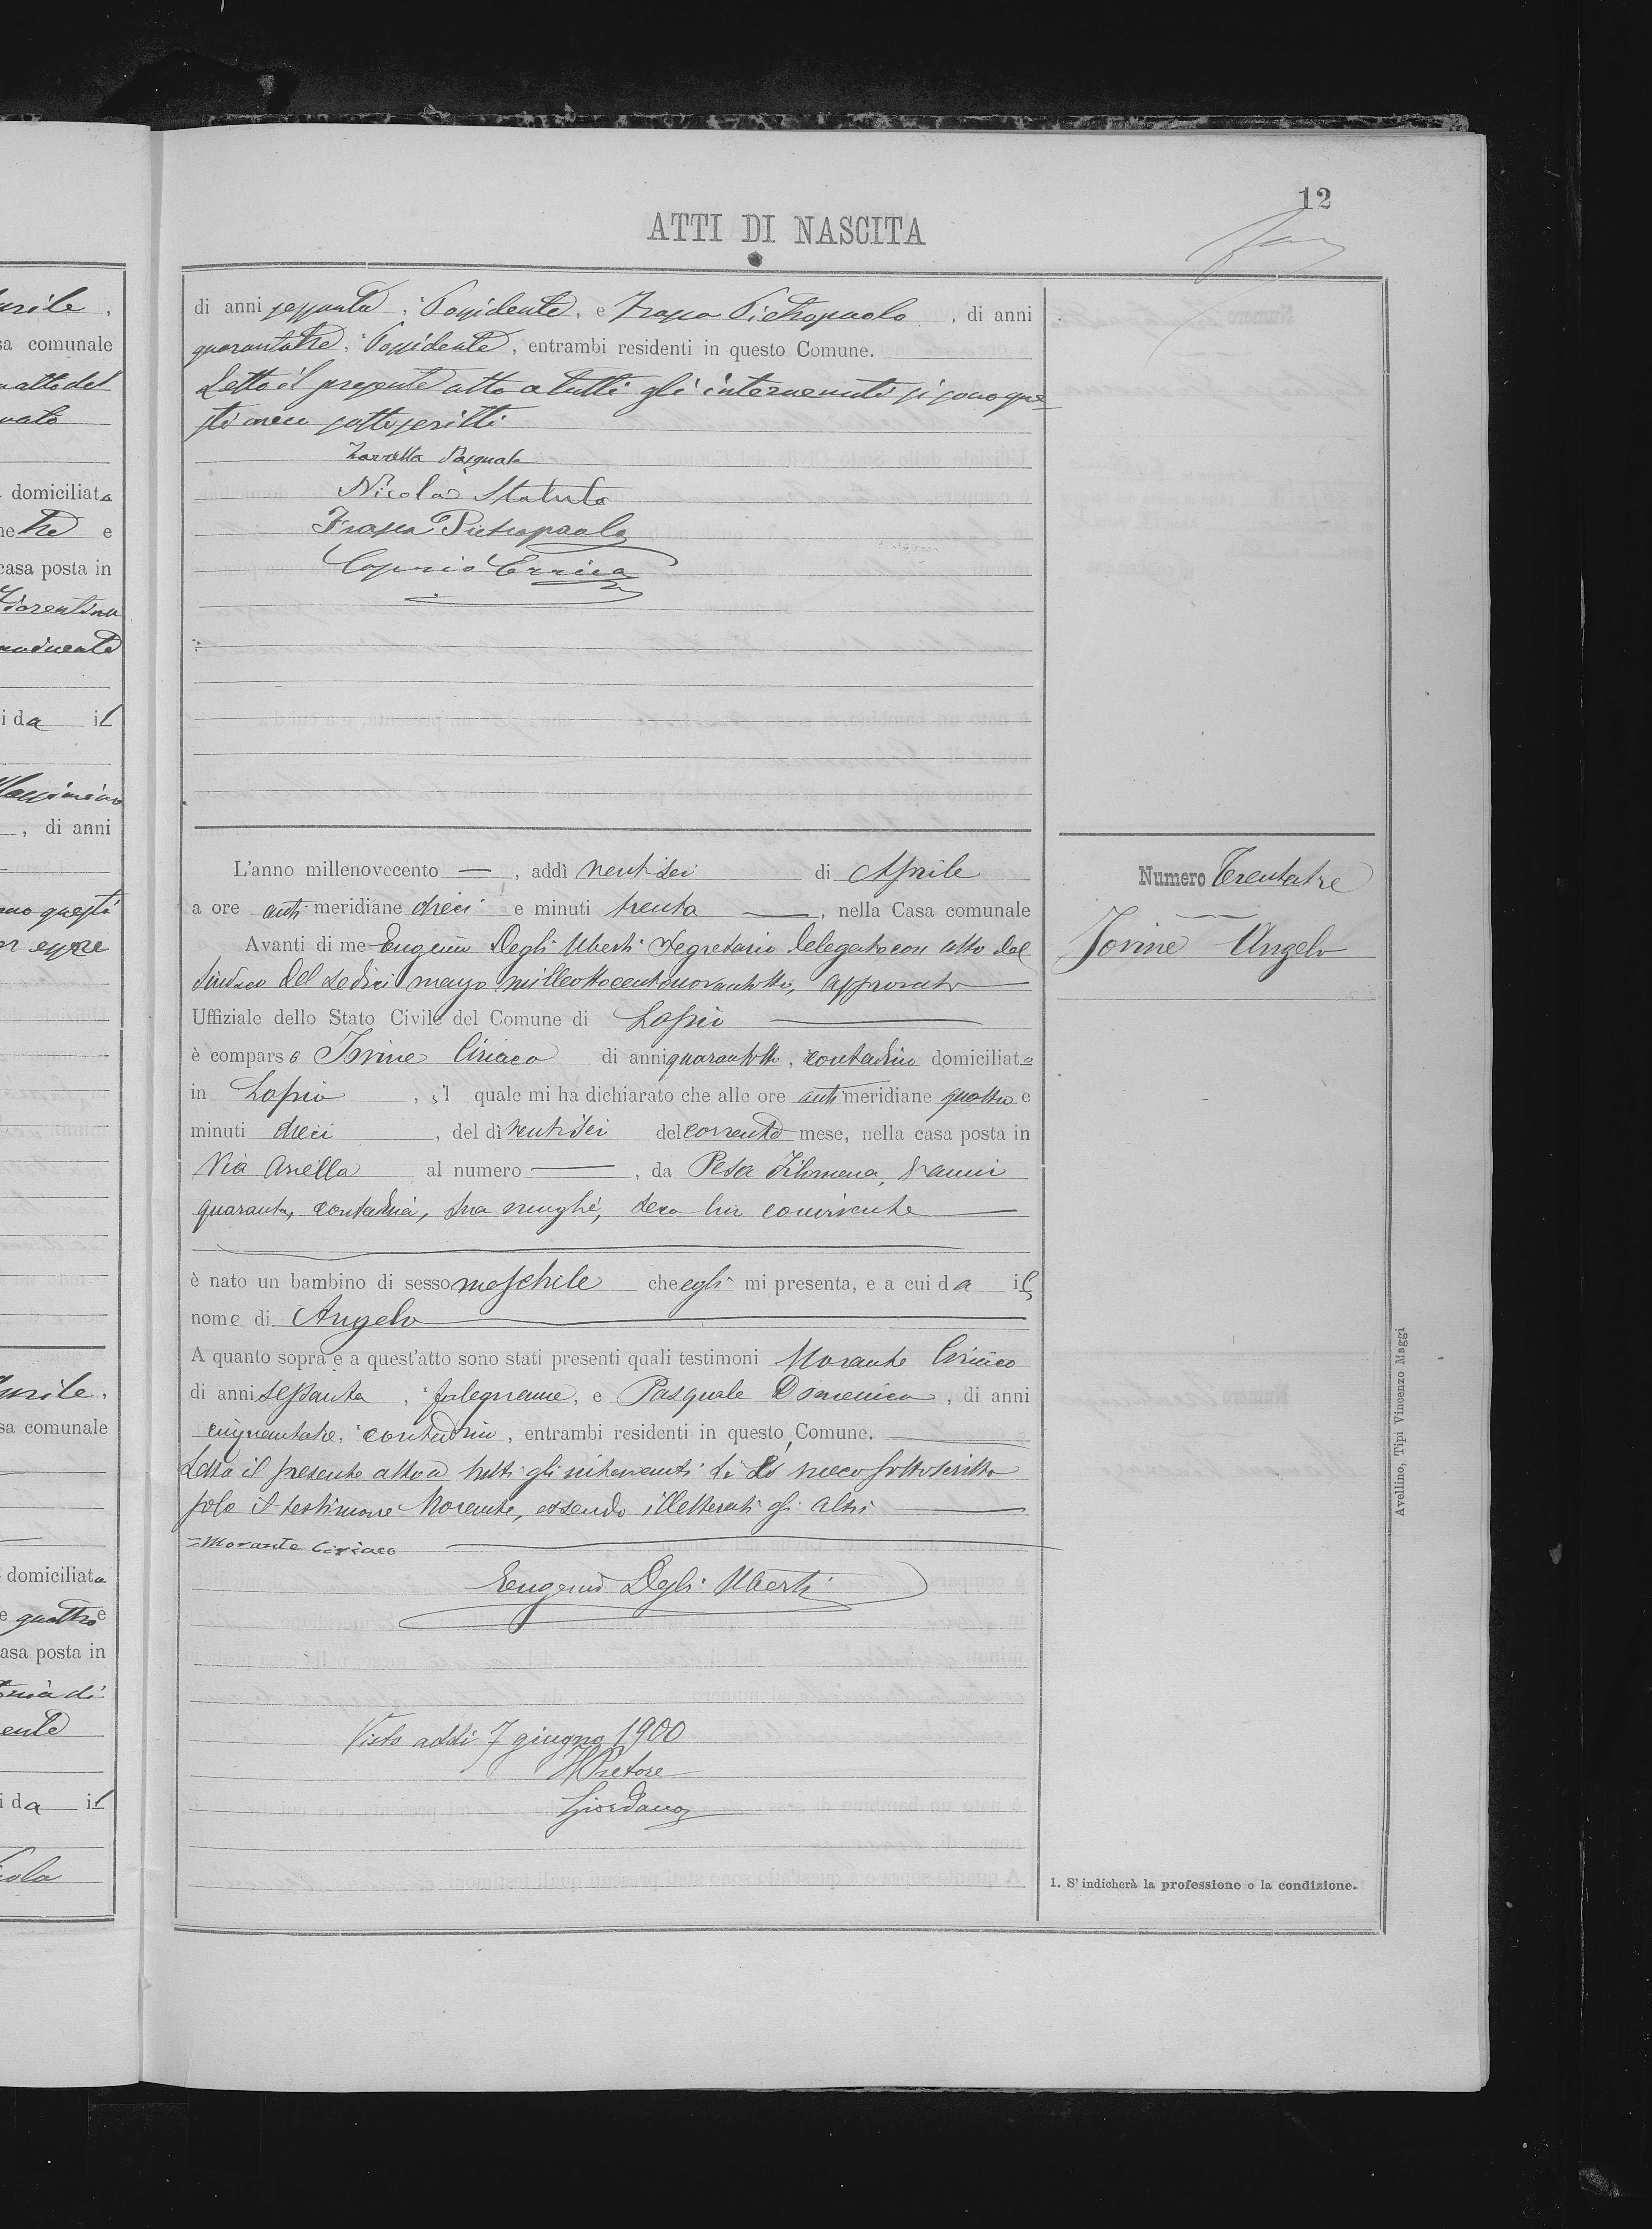 12
ATTI DI NASCITA
di anni sessanta, Possidente, e Frasca Pietropaolo, di anni
quarantatre, Possidente, entrambi residenti in questo Comune.
Letto il presente atto a tutti gli intervenuti si sono que-
sti meco sottoscritti
Zarrella Pasquale
Nicola Statuto
Frasca Pietropaolo
Caprio Errico
L'anno millenovecento —, addì ventisei di Aprile
a ore anti meridiane dieci e minuti trenta —, nella Casa comunale
Avanti di me Eugenio Degli Uberti Segretario Delegato con atto del
Sindaco del sedici marzo milleottocentonovantotto, approvato
Uffiziale dello Stato Civile del Comune di Lapio
è comparso Iovine Ciriaco di anni quarantotto, contadino domiciliato
in Lapio, il quale mi ha dichiarato che alle ore anti meridiane quattro e
minuti dieci, del dì ventisei del corrente mese, nella casa posta in
Via Ariella al numero —, da Pesa Filomena, d'anni
quaranta, contadina, sua moglie, seco lui convivente
è nato un bambino di sesso maschile che egli mi presenta, e a cui da il
nome di Angelo
A quanto sopra e a quest'atto sono stati presenti quali testimoni Morante Ciriaco
di anni sessanta, falegname, e Pasquale Domenico, di anni
cinquantatre, contadino, entrambi residenti in questo Comune.
Letto il presente atto a tutti gli intervenuti si è meco sottoscritto
solo il testimone Morante, essendo illetterati gli altri
Morante Ciriaco
Eugenio Degli Uberti
Visto addì 7 giugno 1900
Il Pretore
Giordano
Numero Trentatre
Iovine Angelo
1. S'indicherà la professione o la condizione.
Avellino, Tipi Vincenzo Maggi